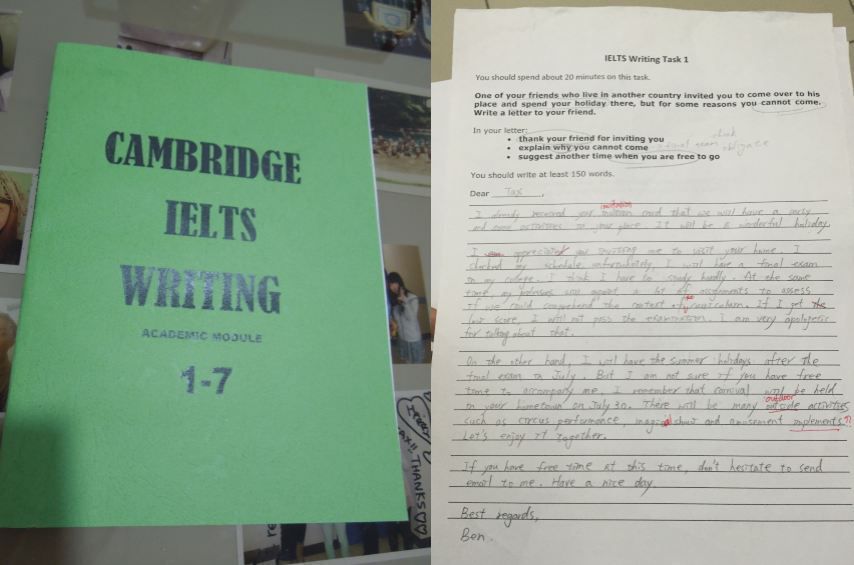 CAMBRIDGE
IELTS
WRITING
ACADEMIC MODULE
1-7
THANKS
IELTS Writing Task 1
You should spend about 20 minutes on this task.
One of your friends who live in another country invited you to come over to his
place and spend your holiday there, but for some reasons you cannot come.
Write a letter to your friend.
In your letter:
• thank your friend for inviting you
• explain why you cannot come
final exam
• suggest another time when you are free to go
obligate
You should write at least 150 words.
Dear Tax,
invitation
I already received your card that we will have a party
and some activities in your place. It will be a wonderful holiday.
I appreciated you inviting me to visit your home. I
checked my schedule, unfortunately, I will have a final exam
in my college. I think I have to study hardly. At the same
time, my professors will a lot of assignments to assess
if we could comprehend the context of the curriculum. If I get the
low score, I will not pass the examination. I am very apologetic
for talking about that.
On the other hand, I will have the summer holidays after the
final exam in July. But I am not sure if you have free
time to accompany me. I remember that carnival will be held
in your hometown on July 30. There will be many outside activities
outdoor
such as circus performance, magical show and amusement implements??
Let's enjoy it together.
If you have free time at this time, don't hesitate to send
email to me. Have a nice day.
Best regards,
Ben.